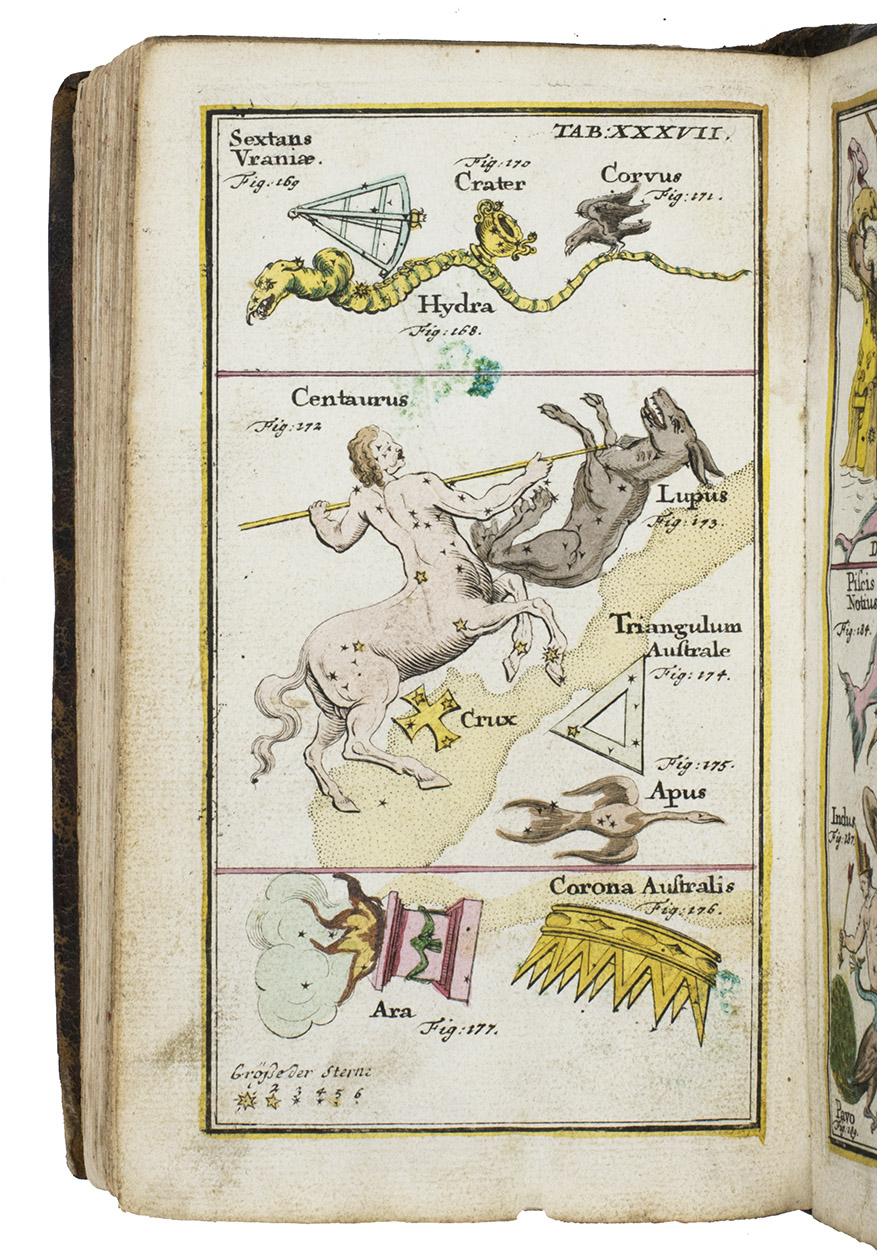 TAB: XXXVII.
Sextans
Vraniæ.
Fig: 169
Fig: 170
Crater
Corvus
Fig: 171.
Hydra
Fig: 168.
Centaurus
Fig: 172
Lupus
Fig: 173
Triangulum
Auſtrale
Fig: 174.
Crux
Fig: 175.
Apus
Corona Auſtralis
Fig: 176.
Ara
Fig: 177.
Größe der Sterne
2 3 4 5 6
D
Piſcis
Notius
Fig: 184.
Indus
Fig: 187.
Pavo